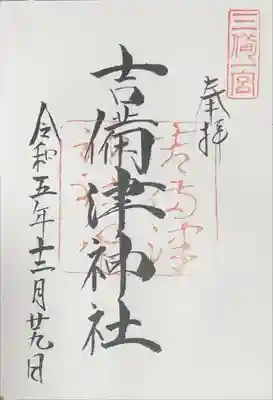 三備一宮
奉拝
吉備津神社
令和五年十二月廿九日